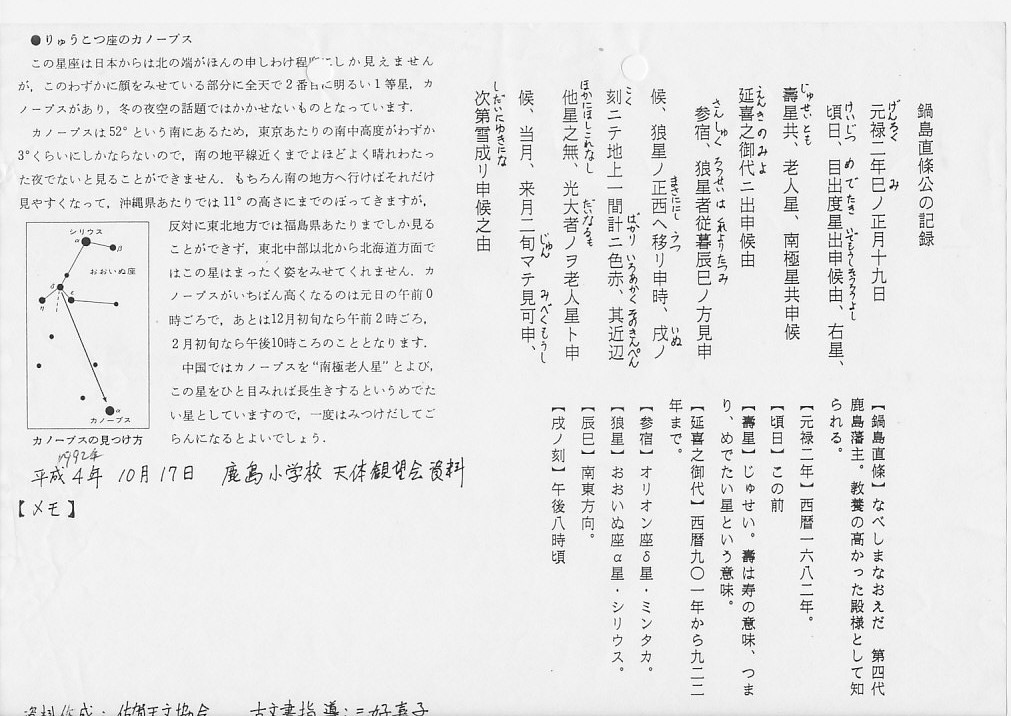 鍋島直條公の記録
元禄二年巳ノ正月十九日
頃日、目出度星出申候由、右星、
壽星共、老人星、南極星共申候
延喜之御代ニ出申候由
参宿、狼星者従暮辰巳ノ方見申
候、狼星ノ正西ヘ移リ申時、戌ノ
刻ニテ地上一間計ニ色赤、其近辺
他星之無、光大者ノヲ老人星ト申
候、当月、来月二旬マテ見可申、
次第雪成リ申候之由
げんろく
み
けいじつ
めでたき
いでもうしそうろうよし
じゅせいとも
えんきのみよ
さんしゅく
ろうせいは
くれよりたつみ
まさににし
うつ
いぬ
こく
ばかり
いろあかく
そのきんぺん
ほかにほしこれなし
だいなるもの
じゅん
みべくもうし
しだいにゆきにな
【鍋島直條】なべしまなおえだ 第四代
鹿島藩主。教養の高かった殿様として知
られる。
【元禄二年】西暦一六八二年。
【頃日】この前
【壽星】じゅせい。壽は寿の意味、つま
り、めでたい星という意味。
【延喜之御代】西暦九〇一年から九二二
年まで。
【参宿】オリオン座δ星・ミンタカ。
【狼星】おおいぬ座α星・シリウス。
【辰巳】南東方向。
【戌ノ刻】午後八時頃
●りゅうこつ座のカノープス
この星座は日本からは北の端がほんの申しわけ程度にしか見えません
が，このわずかに顔をみせている部分に全天で2番目に明るい1等星，カ
ノープスがあり，冬の夜空の話題ではかかせないものとなっています．
カノープスは52°という南にあるため，東京あたりの南中高度がわずか
3°くらいにしかならないので，南の地平線近くまでよほどよく晴れわたっ
た夜でないと見ることができません．もちろん南の地方へ行けばそれだけ
見やすくなって，沖縄県あたりでは11°の高さにまでのぼってきますが，
反対に東北地方では福島県あたりまでしか見る
ことができず，東北中部以北から北海道方面で
はこの星はまったく姿をみせてくれません．カ
ノープスがいちばん高くなるのは元日の午前0
時ごろで，あとは12月初旬なら午前2時ごろ，
2月初旬なら午後10時ころのこととなります．
中国ではカノープスを“南極老人星”とよび，
この星をひと目みれば長生きするというめでた
い星としていますので，一度はみつけだしてご
らんになるとよいでしょう．
シリウス
α
β
おおいぬ座
δ
ε
η
α
カノープス
カノープスの見つけ方
1992年
平成4年 10月17日 鹿島小学校 天体観望会資料
【メモ】
資料作成：佐賀天文協会 古文書指導：三好嘉子